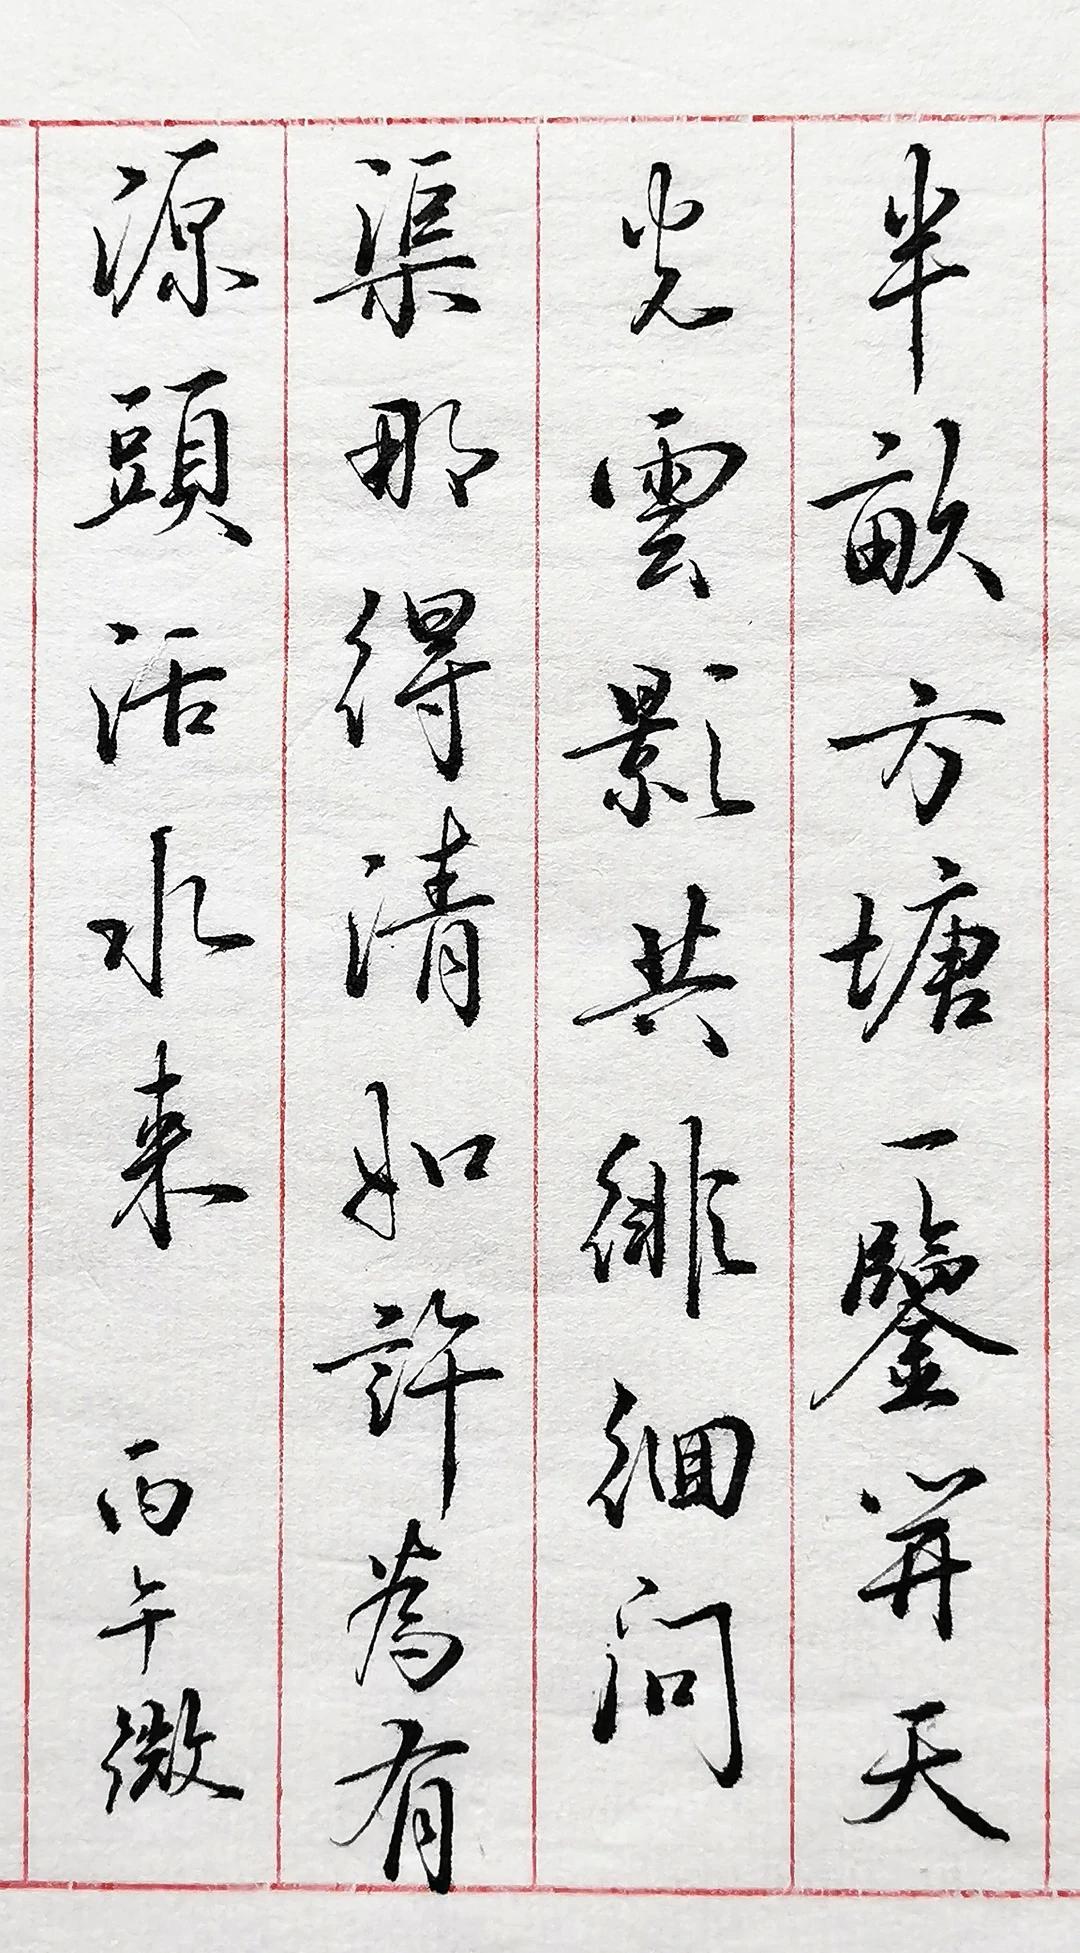 半畝方塘一鑒开天
光雲影共徘徊问
渠那得清如許為有
源頭活水来 丙午微